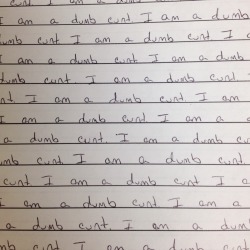 I am a dumb cunt I
I am a dumb cunt I am a dumb
dumb cunt I am a dumb cunt I
cunt I am a dumb cunt I am a
dumb cunt. I am a dumb cunt
I am a dumb cunt I am
I am a dumb cunt I am a
a dumb cunt. I am a dumb
dumb cunt I am a dumb cunt
cunt I am a dumb cunt I a
I am a dumb cunt I am a
a dumb cunt, I am a dumb
dumb cunt I am a dumb cunt